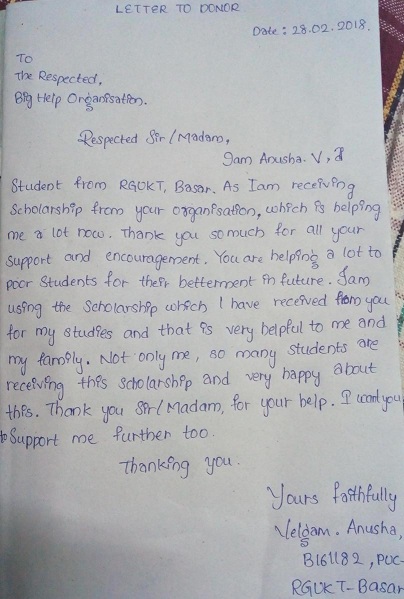 LETTER TO DONOR
Date : 28.02.2018.
To
The Respected,
Big Help Organisation.
Respected Sir/Madam,
Iam Anusha. V, I
Student from RGUKT, Basar. As Iam receiving
Scholarship from your organisation, which is helping
me a lot now. Thank you so much for all your
support and encouragement. You are helping a lot to
poor students for their betterment in future. Iam
using the scholarship which I have received from you
for my studies and that is very helpful to me and
my family. Not only me, so many students are
receiving this scholarship and very happy about
this. Thank you Sir/Madam, for your help. I want you
to Support me further too.
Thanking you.
Yours faithfully
Veldam. Anusha,
B161182, PUC-
RGUKT-Basar